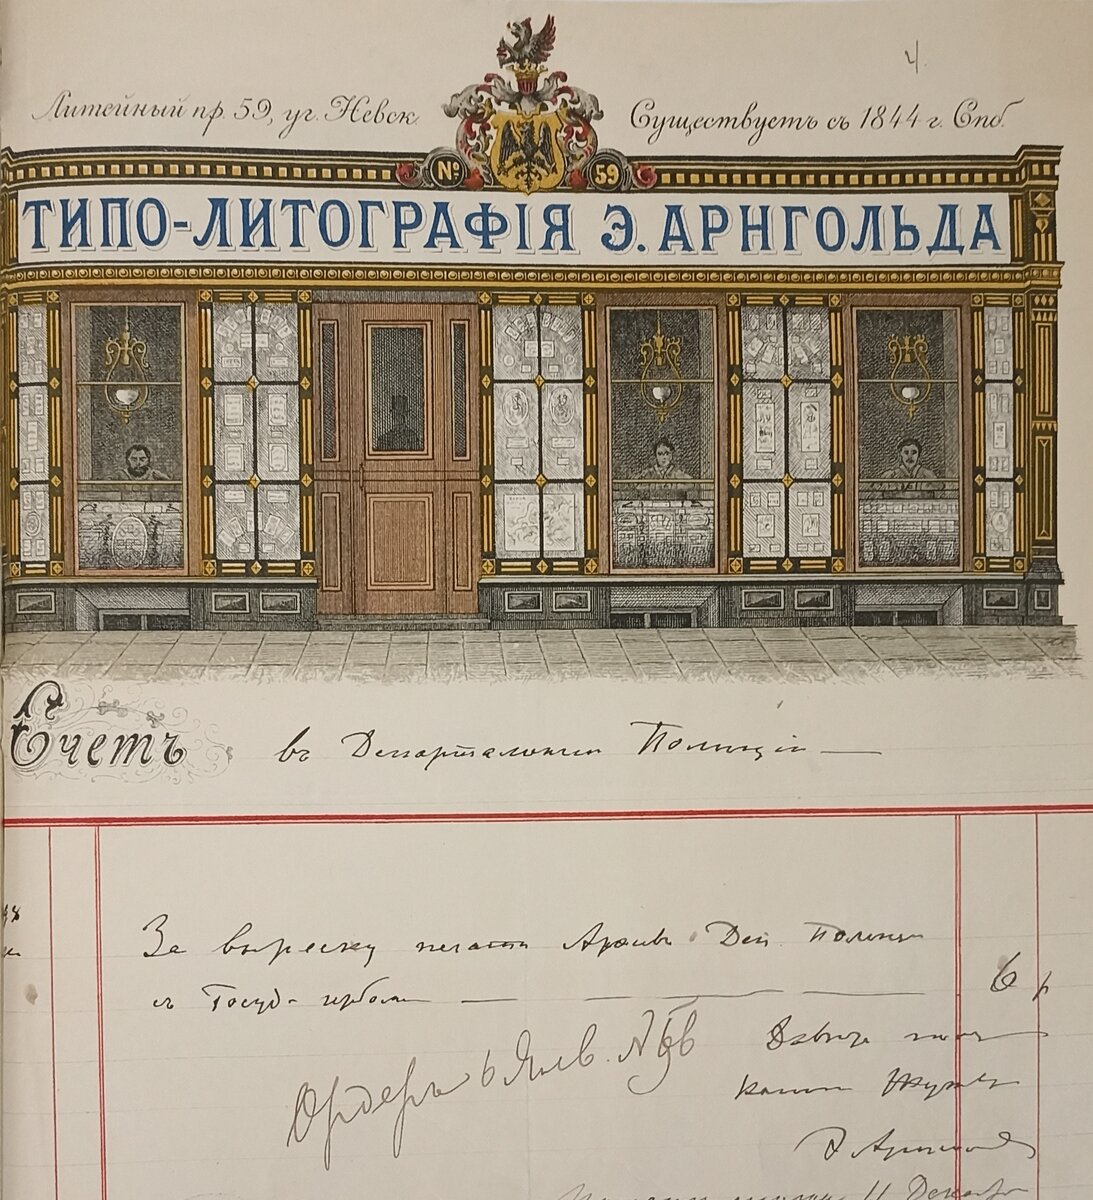 Ч.
Литейный пр. 59, уг. Невск.
Существуетъ съ 1844 г. Спб.
№ 59
ТИПО-ЛИТОГРАФІЯ Э. АРНГОЛЬДА
Счетъ въ Департаментъ Полиціи
За вырезку печати Архивъ Деп. Полиции
съ Госуд. гербомъ 6 р
Ордеръ 6 Янв. №
Э Арнгольд
11 Декабря